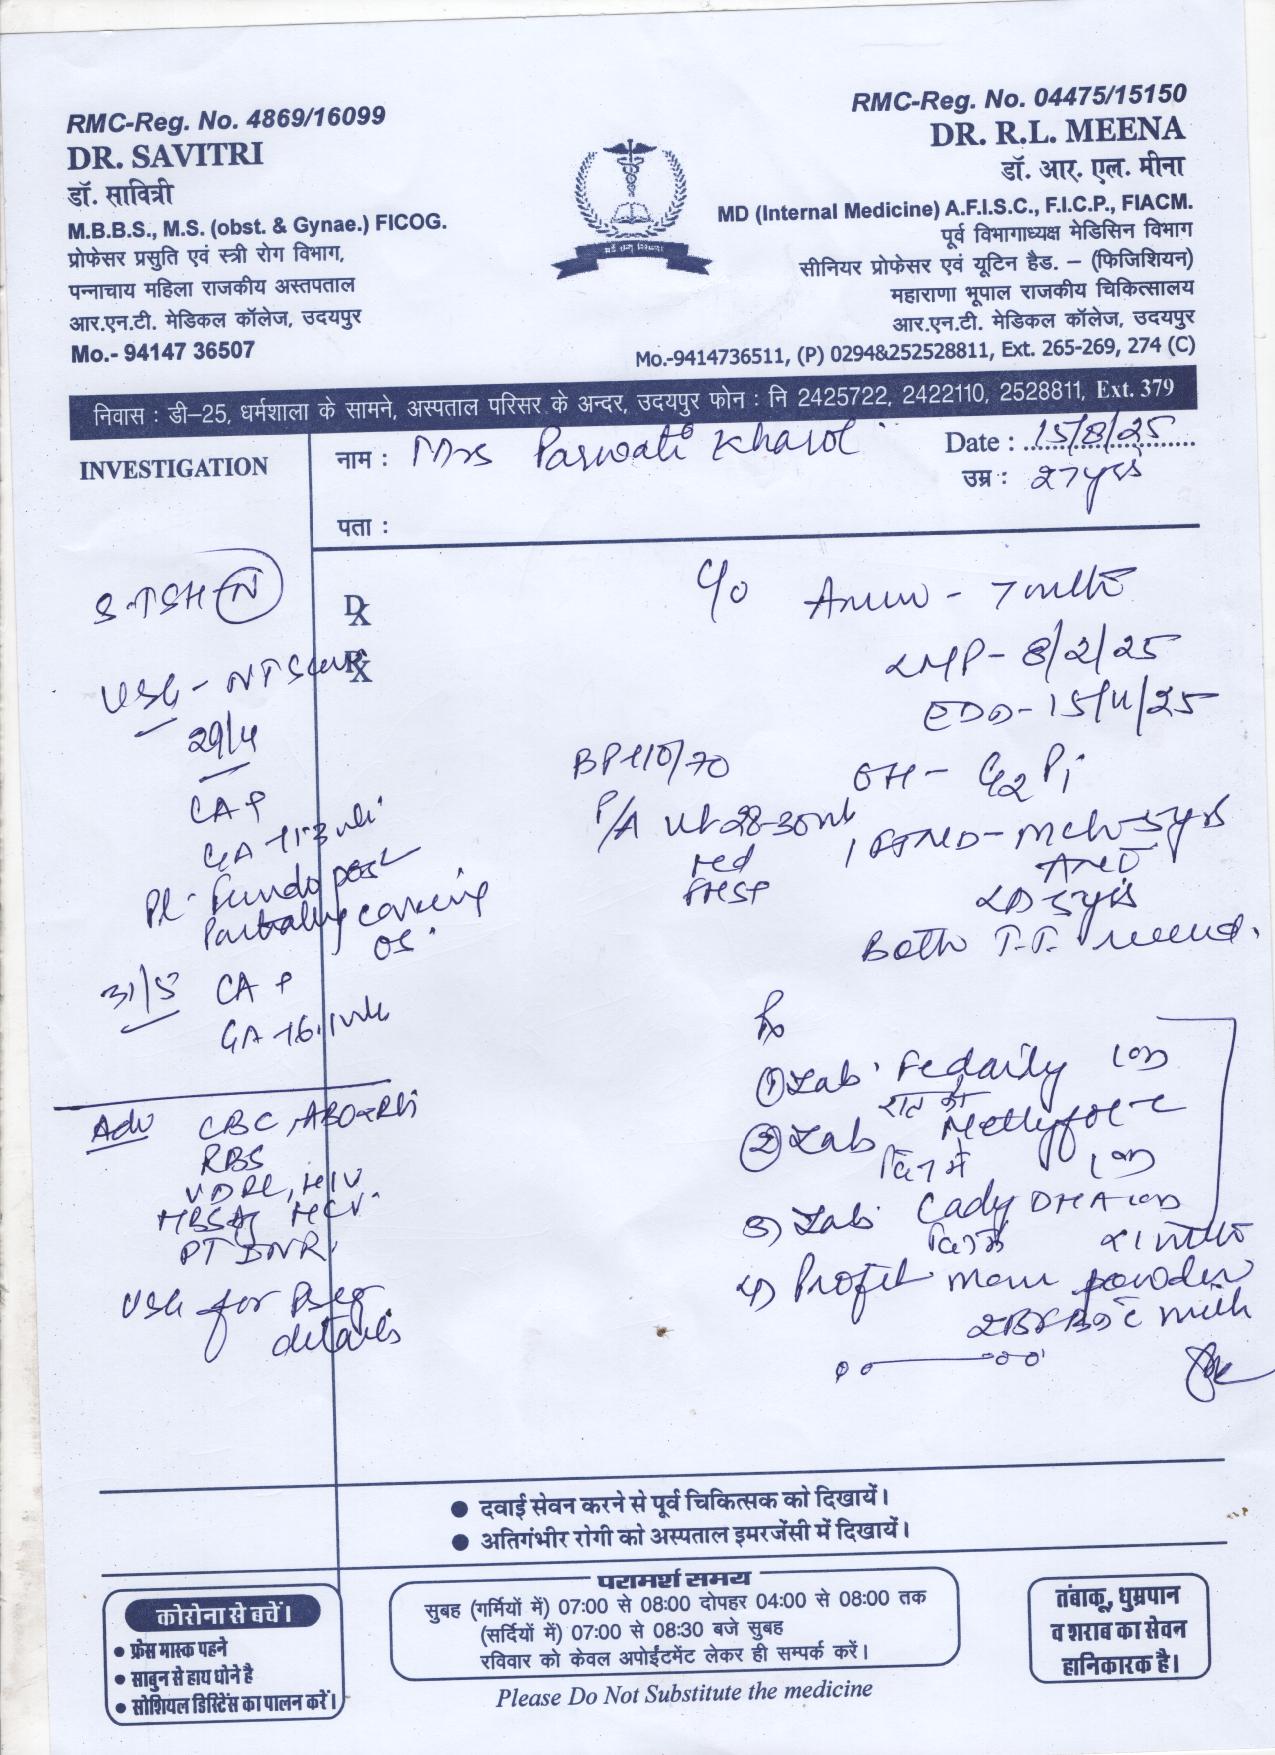 RMC-Reg. No. 4869/16099
DR. SAVITRI
डॉ. सावित्री
M.B.B.S., M.S. (obst. & Gynae.) FICOG.
प्रोफेसर प्रसुति एवं स्त्री रोग विभाग,
पन्नाचाय महिला राजकीय अस्तपताल
आर.एन.टी. मेडिकल कॉलेज, उदयपुर
Mo.- 94147 36507
RMC-Reg. No. 04475/15150
DR. R.L. MEENA
डॉ. आर. एल. मीना
MD (Internal Medicine) A.F.I.S.C., F.I.C.P., FIACM.
पूर्व विभागाध्यक्ष मेडिसिन विभाग
सीनियर प्रोफेसर एवं यूटिन हैड. – (फिजिशियन)
महाराणा भूपाल राजकीय चिकित्सालय
आर.एन.टी. मेडिकल कॉलेज, उदयपुर
Mo.-9414736511, (P) 0294&252528811, Ext. 265-269, 274 (C)
निवास : डी–25, धर्मशाला के सामने, अस्पताल परिसर के अन्दर, उदयपुर फोन : नि 2425722, 2422110, 2528811, Ext. 379
INVESTIGATION
नाम : Mrs Parwati Kharol
Date : 15/8/25
उम्र : 27yrs
पता :
S-TSH-N
USG - NT Scan
29/4
CA +
PL- Fundo post
Partially covering
OS.
31/5 CA +
Adv CBC, ABO & Rh
RBS
VDRL, HIV
HBSAg HCV
PT INR
USG for Preg
details
Dx
Rx
C/o Amen - 7 mths
LMP- 8/2/25
EDD- 15/11/25
BP 110/70
OH - G2 P1
P/A Ut 28-30wk
1 FTND - Mch-5yrs
LD 5yrs
Both T.T. received.
Rx
① Tab. Fedaily 1 OD
रात को
② Tab
दिन में 1 OD
3) Tab. Cady DHA 1 OD
दिन में x 1 mth
4) Profit mom powder
milk
● दवाई सेवन करने से पूर्व चिकित्सक को दिखायें।
● अतिगंभीर रोगी को अस्पताल इमरजेंसी में दिखायें।
कोरोना से बचें।
● फ्रेस मास्क पहने
● साबुन से हाथ धोने है
● सोशियल डिस्टिेंस का पालन करें।
परामर्श समय
सुबह (गर्मियों में) 07:00 से 08:00 दोपहर 04:00 से 08:00 तक
(सर्दियों में) 07:00 से 08:30 बजे सुबह
रविवार को केवल अपोईंटमेंट लेकर ही सम्पर्क करें।
Please Do Not Substitute the medicine
तंबाकू, धुम्रपान
व शराब का सेवन
हानिकारक है।